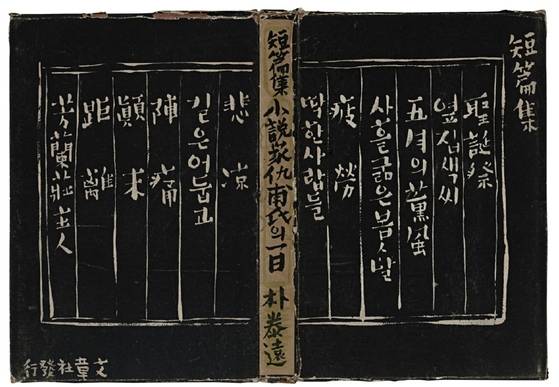 短篇集
聖誕祭
옆집색씨
五月의薰風
사흘굶은봄ㅅ달
疲勞
딱한사람들
短篇集 小說家仇甫氏의一日 朴泰遠
悲凉
길은어둡고
陣痛
顚末
距離
芳蘭莊主人
文章社發行